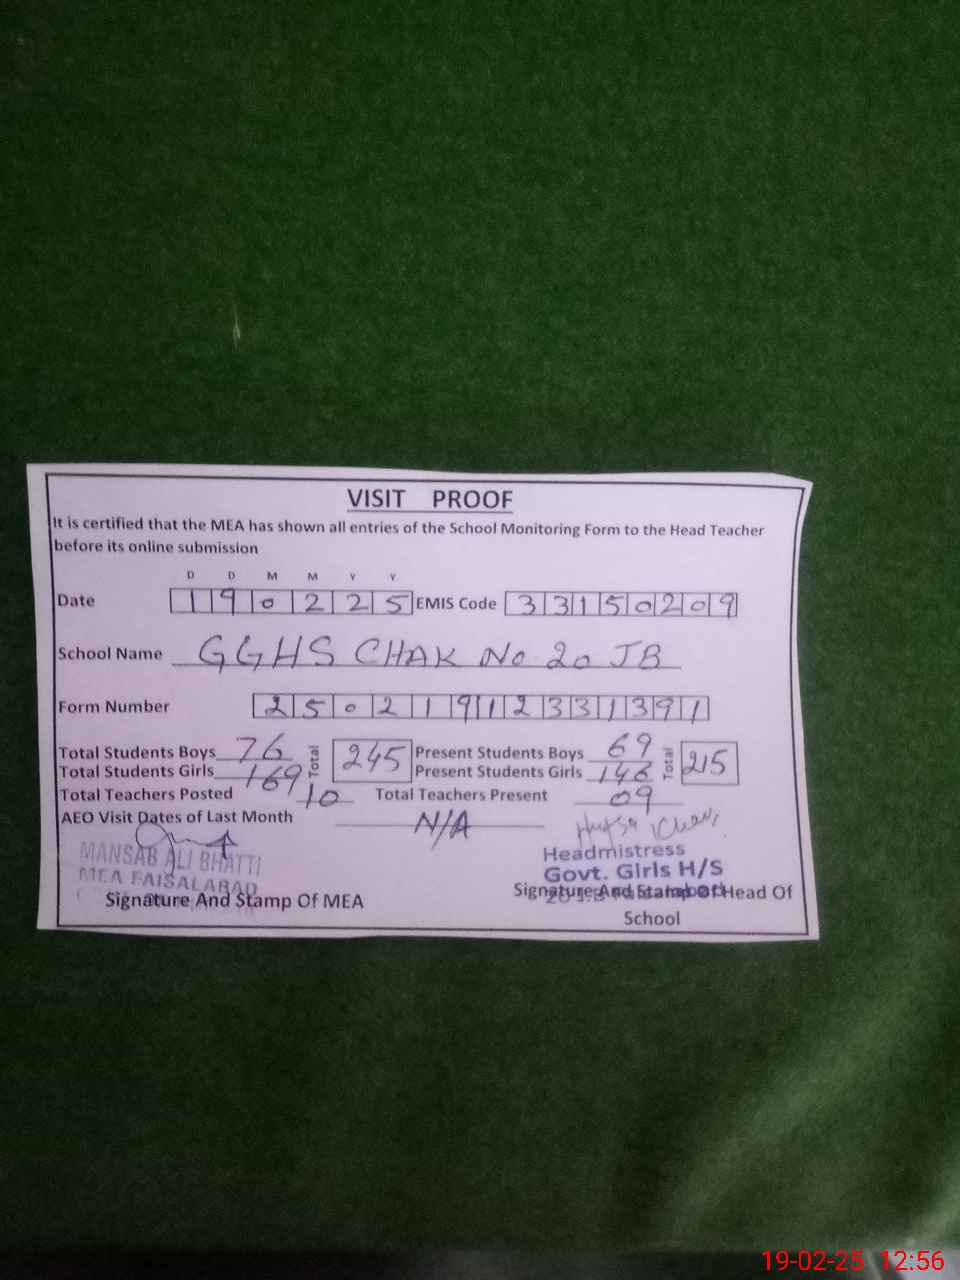 VISIT PROOF
It is certified that the MEA has shown all entries of the School Monitoring Form to the Head Teacher
before its online submission
D D M M Y Y
Date 190225 EMIS Code 33150209
School Name GGHS CHAK No 20 JB
Form Number 25021912331391
Total Students Boys 76 Total 245 Present Students Boys 69 Total 215
Total Students Girls 169 Present Students Girls 146
Total Teachers Posted 10 Total Teachers Present 09
AEO Visit Dates of Last Month N/A
MANSAB ALI BHATTI
MEA FAISALABAD
Signature And Stamp Of MEA
Headmistress
Govt. Girls H/S
Signature And Stamp Of Head Of
School
19-02-25 12:56